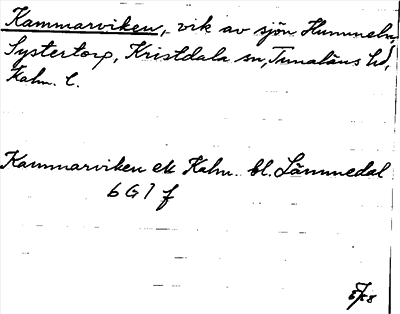 Kammarviken, vik av sjön Hummeln,
Systertorp, Kristdala sn, Tunaläns hd,
Kalm. l.
Kammarviken ek Kalm. bl. Lämmedal
6 G 1 f